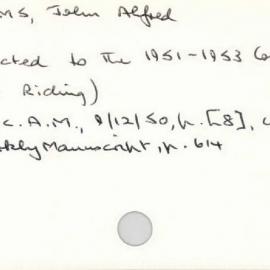 MS, John Alfred
cted to the 1951-1953 Co
Riding)
C.A.M., 9/12/50, p. [8], c
kly Manuscript, p. 614